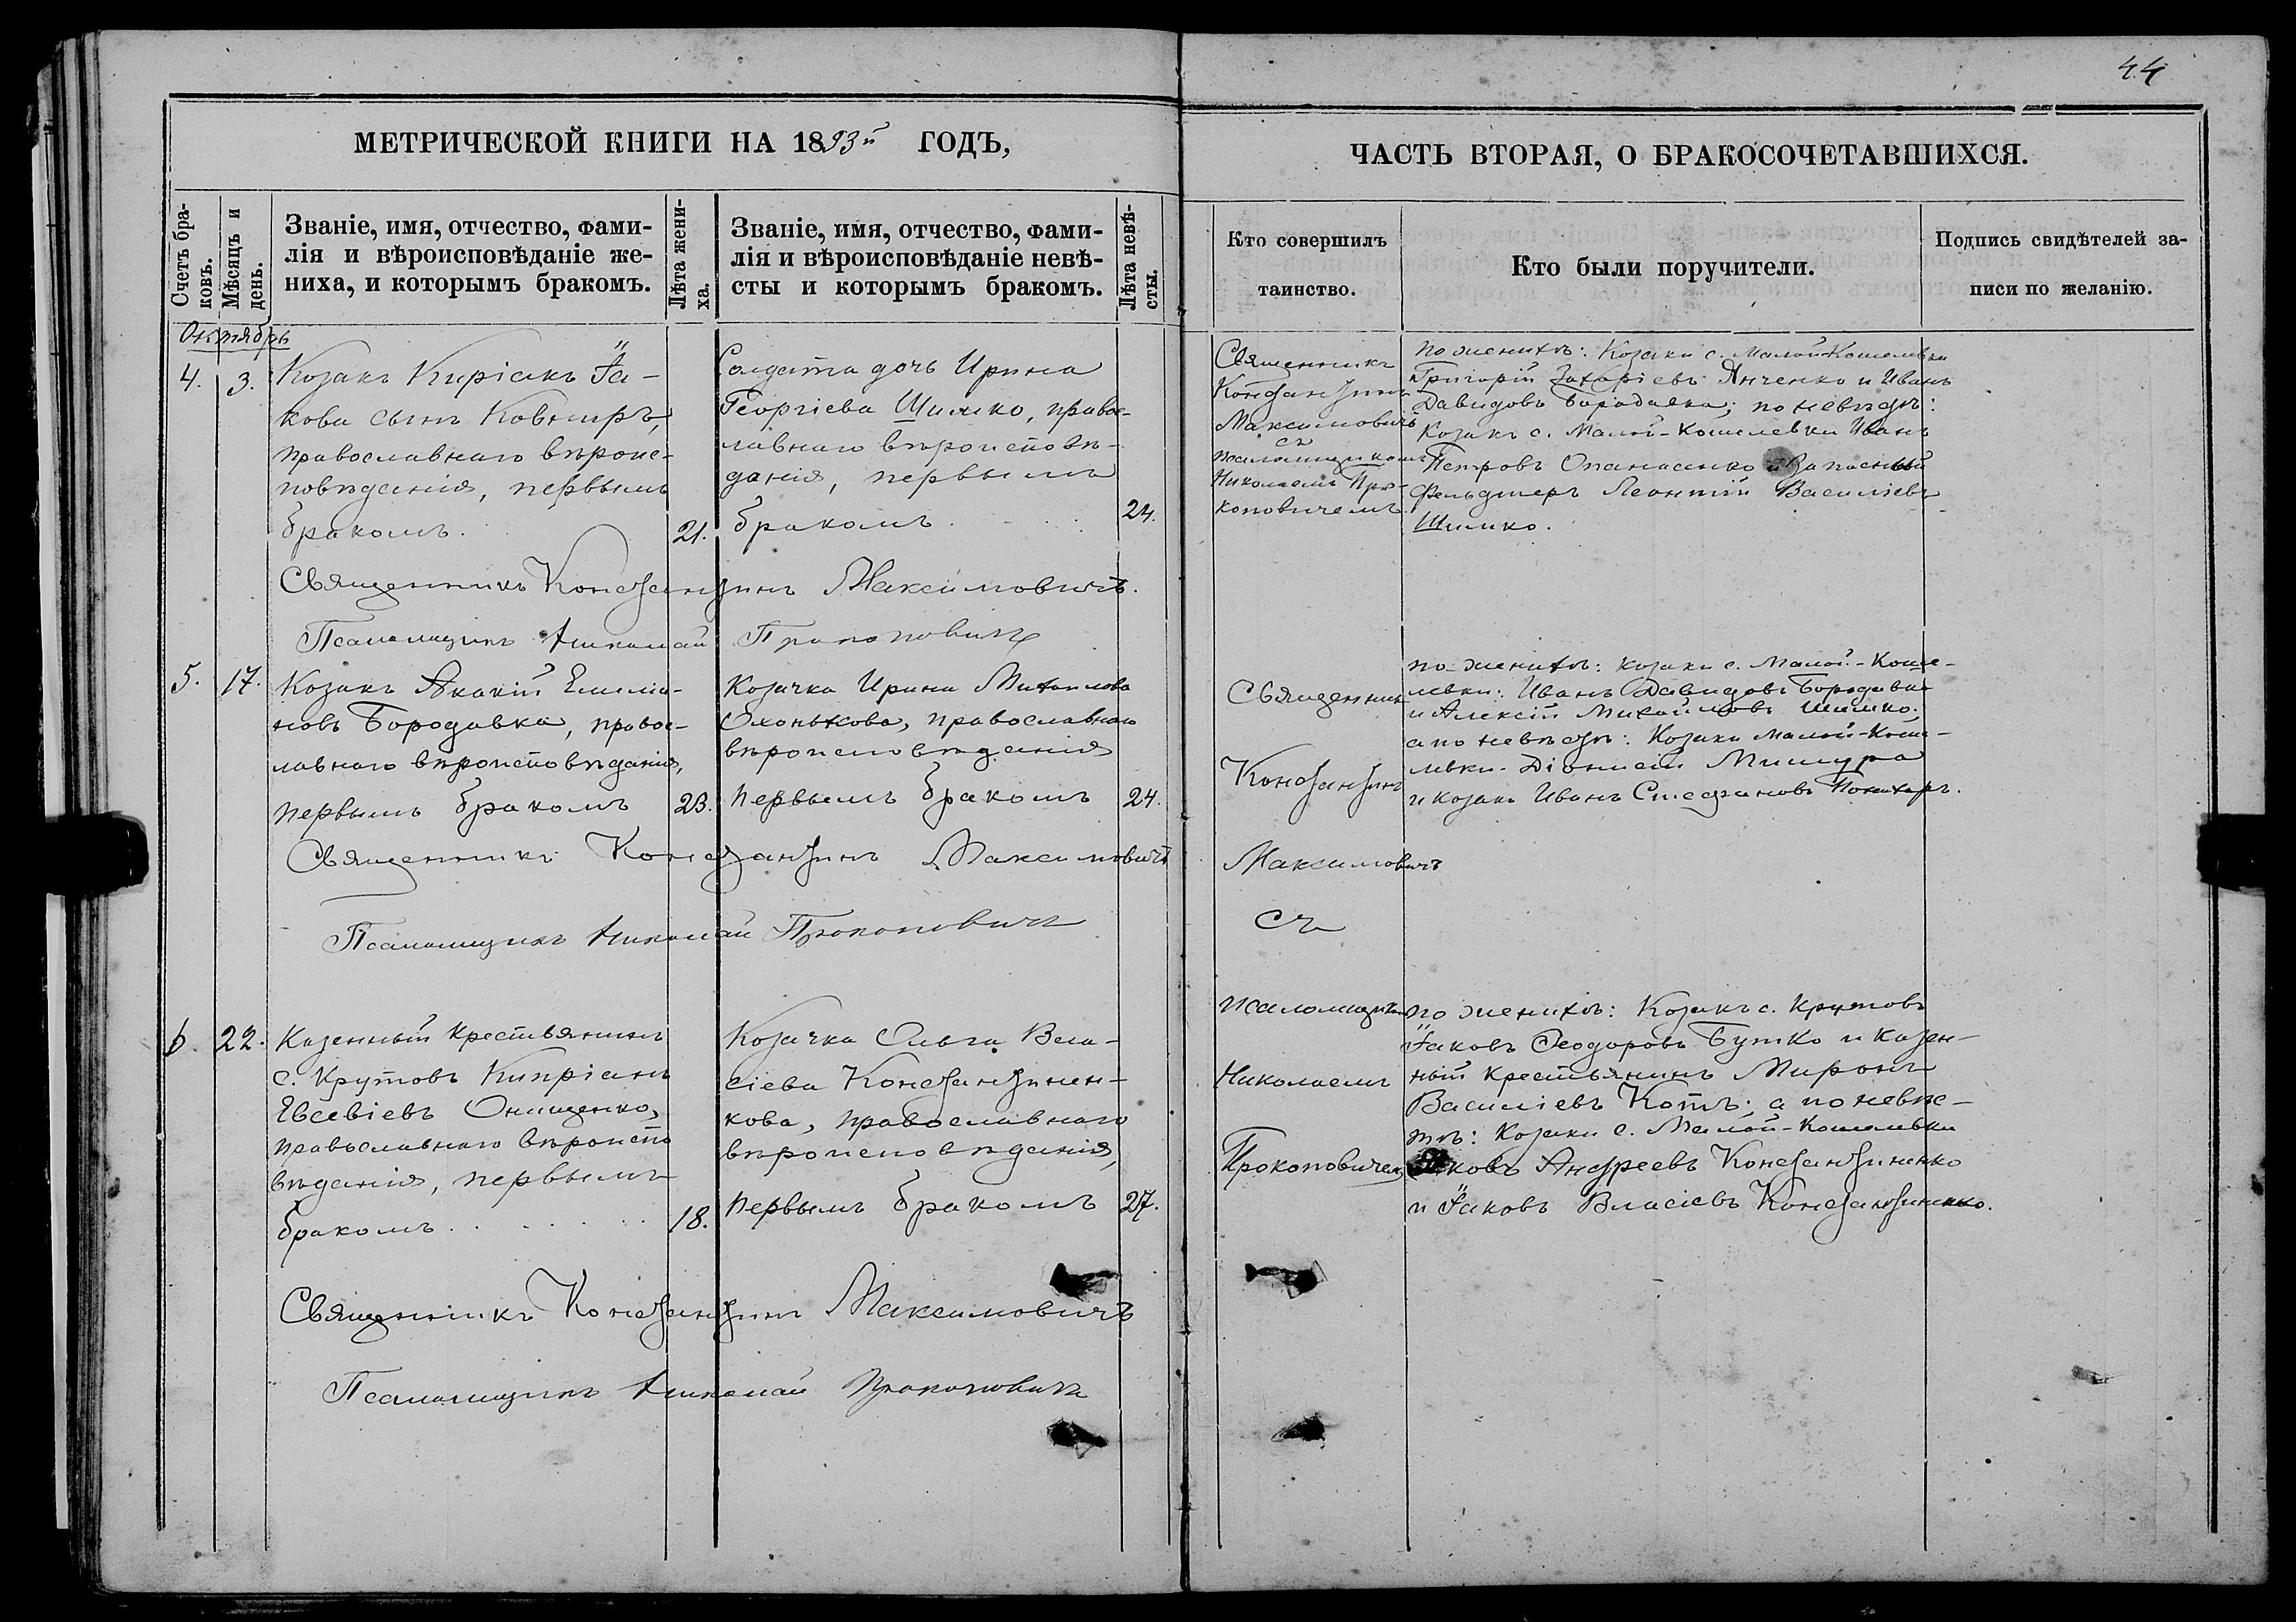 44
МЕТРИЧЕСКОЙ КНИГИ НА 1893й ГОДЪ,
ЧАСТЬ ВТОРАЯ, О БРАКОСОЧЕТАВШИХСЯ.
Счетъ бра-
ковъ.
Мѣсяцъ и
день.
Званіе, имя, отчество, фами-
лія и вѣроисповѣданіе же-
ниха, и которымъ бракомъ.
Лѣта жени-
ха.
Званіе, имя, отчество, фами-
лія и вѣроисповѣданіе невѣ-
сты и которымъ бракомъ.
Лѣта невѣ-
сты.
Кто совершилъ
таинство.
Кто были поручители.
Подпись свидѣтелей за-
писи по желанію.
Октябрь
4.
3.
Козакъ Киріакъ Іа-
кова сынъ Ковтиръ,
православнаго вѣроис-
повѣданія, первымъ
бракомъ.
21.
Солдата дочь Ирина
Георгіева Шимко, право-
лавнаго вѣроисповѣ-
данія, первымъ
бракомъ
24.
Священникъ
Константинъ
Максимовичъ
съ
псаломщикомъ
Николаемъ Про-
коповичемъ
по женихѣ: Козаки с. Малой-Кошелевки
Григорій Захаріевъ Янченко и Иванъ
Давидовъ Бородавка; по невѣстѣ:
Козакъ с. Малой-Кошелевки Иванъ
Петровъ Опанасенко и Запасный
Фельдшеръ Леонтій Василіевъ
Шимко.
Священникъ Константинъ Максимовичъ.
Псаломщикъ Николай Прокоповичъ
5.
17.
Козакъ Акакій Емилиа-
новъ Бородавка, правос-
лавнаго вѣроисповѣданія,
первымъ бракомъ
23.
Козачка Ирина Михаилова
Охонькова, православнаго
вѣроисповѣданія
первымъ бракомъ
24.
Священникъ
Константинъ
Максимовичъ
съ
псаломщикомъ
Николаемъ
Прокоповичемъ
по женихѣ: Козаки с. Малой-Коше-
левки: Иванъ Давидовъ Бородавка
и Алексій Михаиловъ Шимко.
а по невѣстѣ: Козаки Малой-Коше-
левки Діонисій Мишура
и козакъ Иванъ Стефановъ
Священникъ Константинъ Максимовичъ
Псаломщикъ Николай Прокоповичъ
6.
22.
Казенный крестьянинъ
с. Крутовъ Кипріанъ
Евсевіевъ Онищенко,
православнаго вѣроиспо
вѣданія, первымъ
бракомъ
18.
Козачка Ольга Вла-
сіева Константинен-
кова, православнаго
вѣроисповѣданія,
первымъ бракомъ
27.
по женихѣ: Козакъ с. Крутовъ
Іаковъ Ѳеодоровъ Бутко и казен-
ный крестьянинъ Миронъ
Василіевъ Котъ; а по невѣс-
тѣ: Козаки с. Малой-Кошелевки
Іаковъ Андреевъ Константиненко
и Іаковъ Власіевъ Константиненко.
Священникъ Константинъ Максимовичъ
Псаломщикъ Николай Прокоповичъ